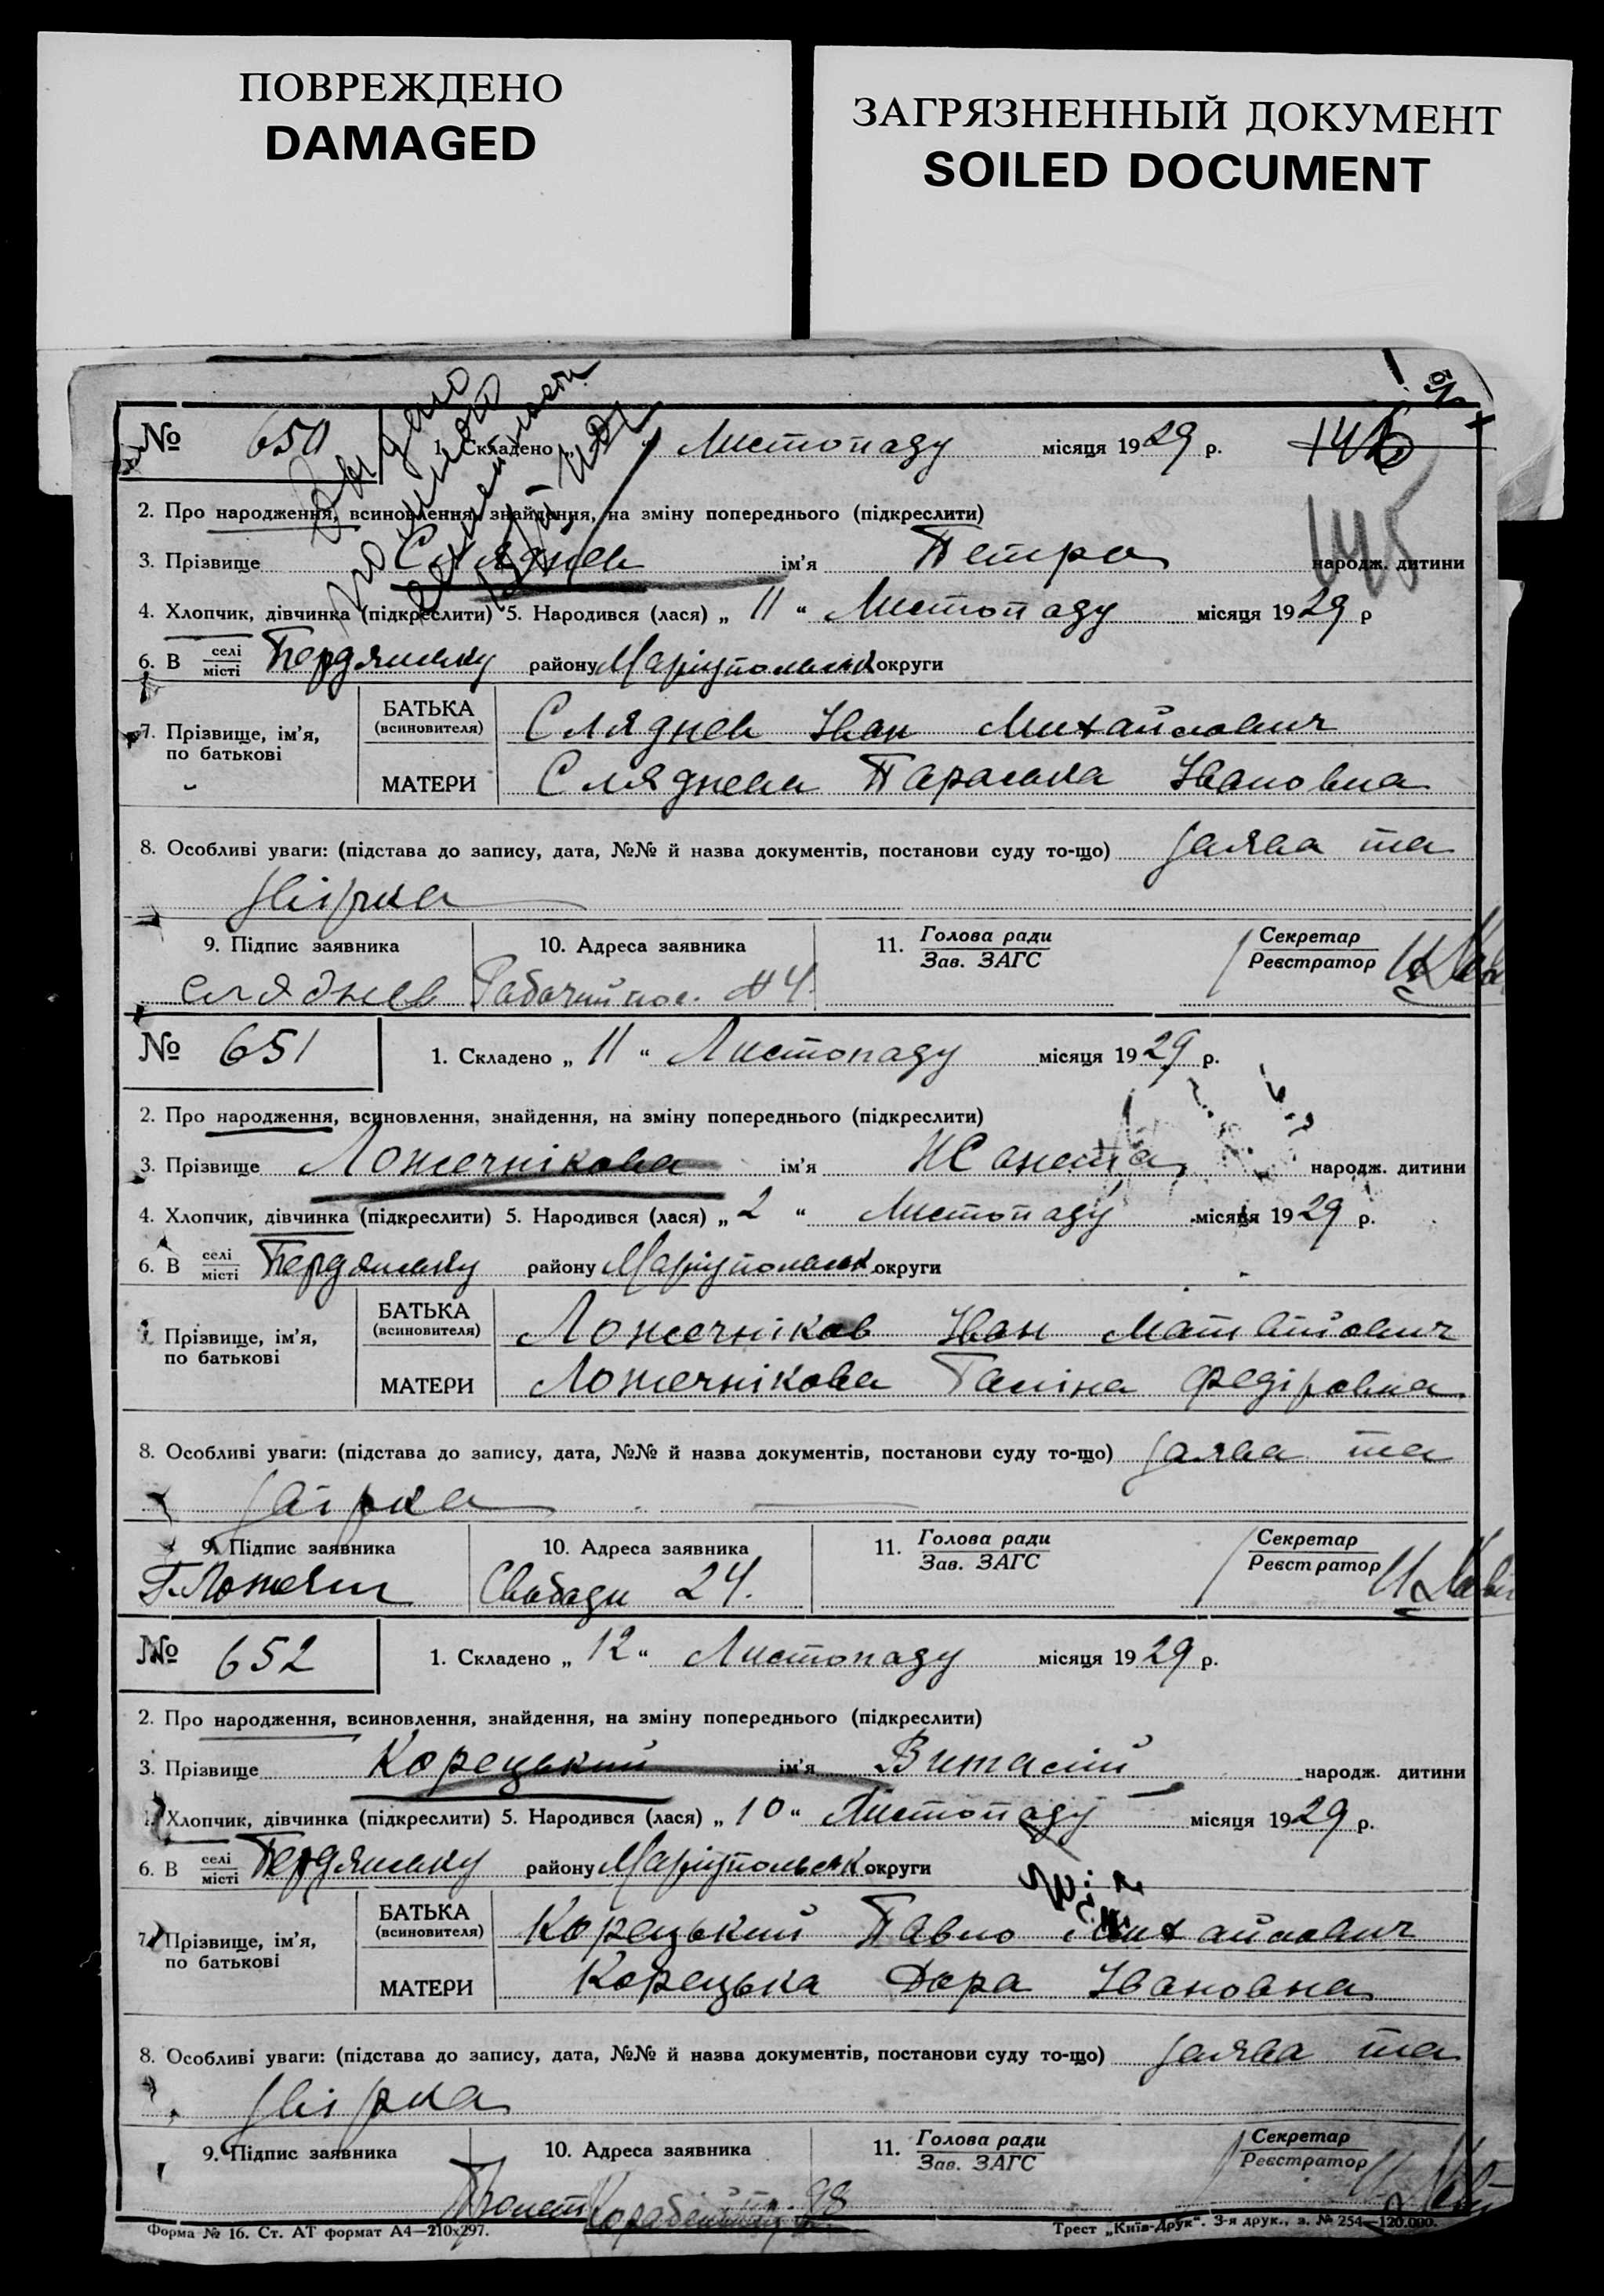 ПОВРЕЖДЕНО
DAMAGED
ЗАГРЯЗНЕННЫЙ ДОКУМЕНТ
SOILED DOCUMENT
№ 650 1. Складено „ “ Листопаду місяця 1929 р.
145
2. Про народження, всиновлення, знайдення, на зміну попереднього (підкреслити)
3. Прізвище Сляднев ім'я Петро народж. дитини
4. Хлопчик, дівчинка (підкреслити) 5. Народився (лася) „ 11 “ Листопаду місяця 1929 р
6. В селі місті Бердянську району Маріупольськ округи
7. Прізвище, ім'я, по батькові
БАТЬКА (всиновителя) Сляднев Іван Михайлович
МАТЕРИ Сляднева Параська Івановна
8. Особливі уваги: (підстава до запису, дата, №№ й назва документів, постанови суду то-що) заява та
звірка
9. Підпис заявника 10. Адреса заявника 11. Голова ради Зав. ЗАГС Секретар Реєстратор
Сляднев Рабочий пос. №4.
№ 651 1. Складено „ 11 “ Листопаду місяця 1929 р.
2. Про народження, всиновлення, знайдення, на зміну попереднього (підкреслити)
3. Прізвище Ложечнікова ім'я Жанета народж. дитини
4. Хлопчик, дівчинка (підкреслити) 5. Народився (лася) „ 2 “ Листопаду місяця 1929 р.
6. В селі місті Бердянську району Маріупольськ округи
Прізвище, ім'я, по батькові
БАТЬКА (всиновителя) Ложечніков Іван Матвійович
МАТЕРИ Ложечнікова Галіна Федіровна
8. Особливі уваги: (підстава до запису, дата, №№ й назва документів, постанови суду то-що) заява та
звірка
9. Підпис заявника 10. Адреса заявника 11. Голова ради Зав. ЗАГС Секретар Реєстратор
Свободи 24.
№ 652 1. Складено „ 12 “ Листопаду місяця 1929 р.
2. Про народження, всиновлення, знайдення, на зміну попереднього (підкреслити)
3. Прізвище Корецький ім'я Виталій народж. дитини
Хлопчик, дівчинка (підкреслити) 5. Народився (лася) „ 10 “ Листопаду місяця 1929 р.
6. В селі місті Бердянську району Маріупольськ округи
7. Прізвище, ім'я, по батькові
БАТЬКА (всиновителя) Корецький Павло Михайлович
МАТЕРИ Корецька Дора Івановна
8. Особливі уваги: (підстава до запису, дата, №№ й назва документів, постанови суду то-що) заява та
звірка
9. Підпис заявника 10. Адреса заявника 11. Голова ради Зав. ЗАГС Секретар Реєстратор
98
Форма № 16. Ст. АТ формат А4—210х297. Трест „Київ-Друк“. 3-я друк., з. № 254—120.000.